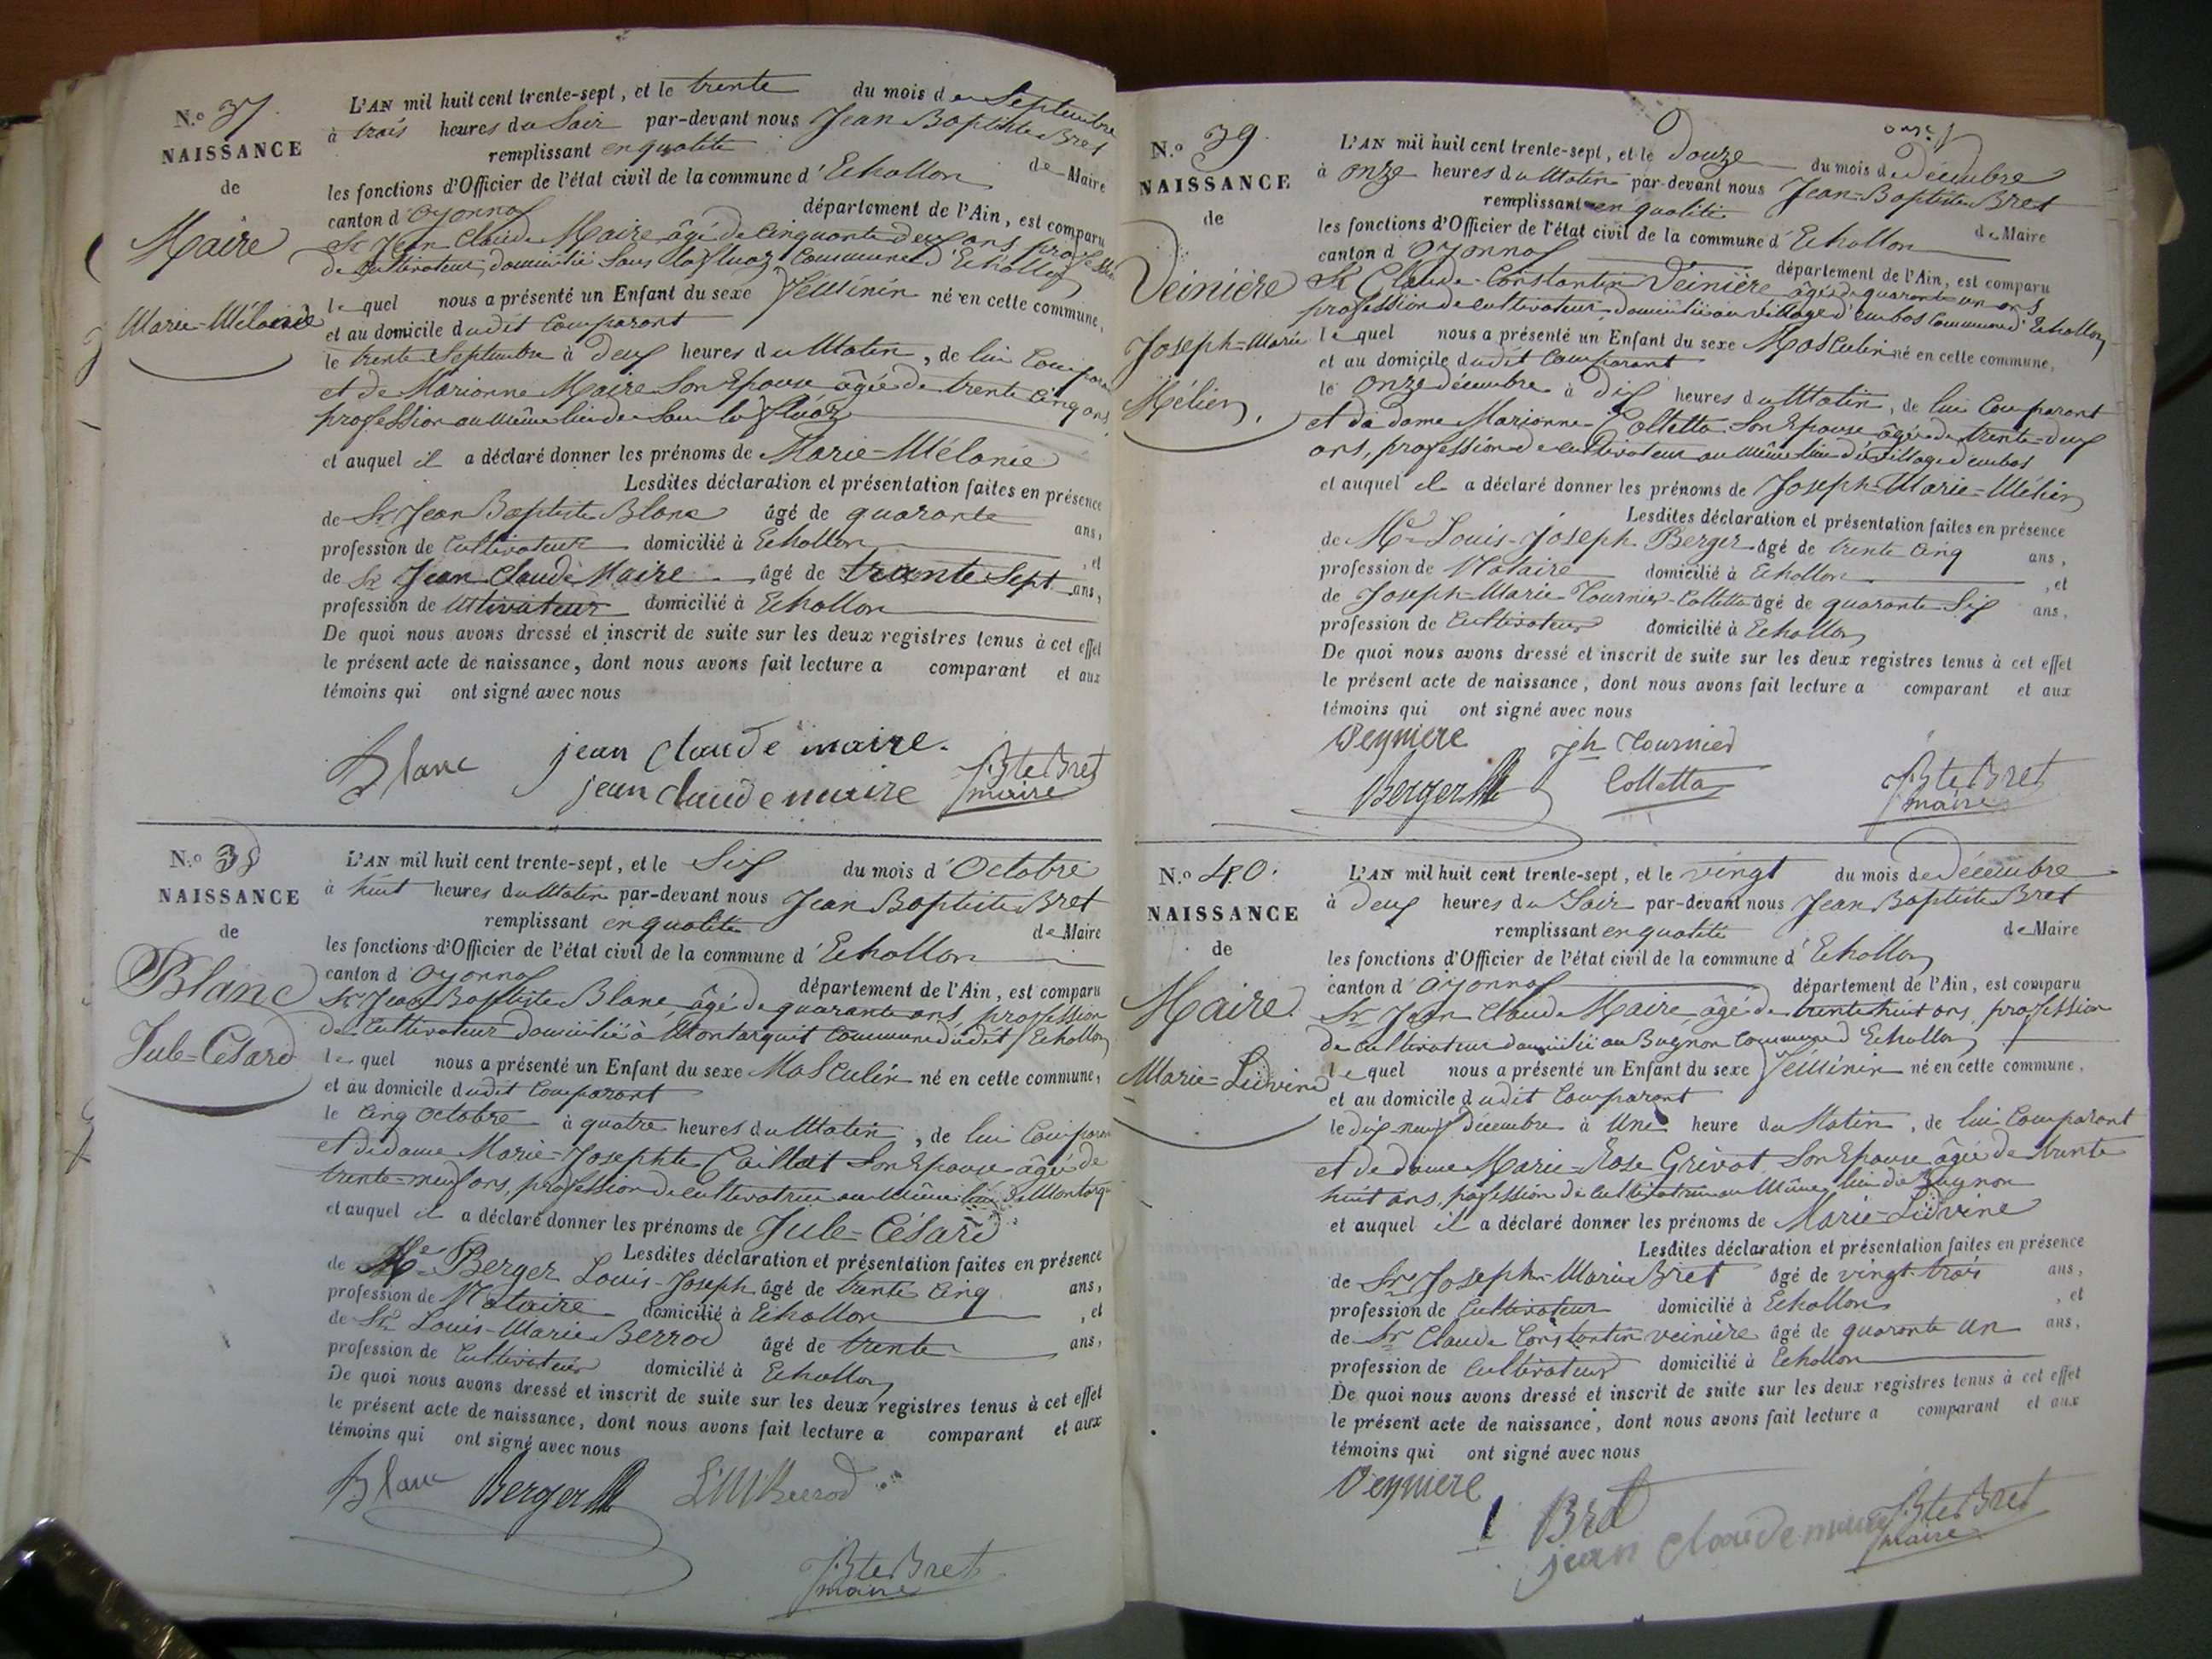 N.º 37.
NAISSANCE
de
Maire
Marie-Mélanie
L'AN mil huit cent trente-sept, et le trente du mois de Septembre
à trois heures du Soir par-devant nous Jean Baptiste Bret
remplissant en qualité de Maire
les fonctions d'Officier de l'état civil de la commune d'Echallon
canton d'Oyonnax département de l'Ain, est comparu
Sr Jean Claude Maire âgé de Cinquante deux ans profession
de Cultivateur, domicilié Sous la fluaz Commune d'Echallon
lequel nous a présenté un Enfant du sexe féminin né en cette commune,
et au domicile dudit Comparant
le trente Septembre à deux heures du Matin, de lui Compara
et de Marianne Maire Son Epouse âgée de trente Cinq ans,
profession au même lieu de Sous la fluaz
et auquel il a déclaré donner les prénoms de Marie-Mélanie
Lesdites déclaration et présentation faites en présence
de Sr Jean Baptiste Blanc âgé de quarante ans,
profession de Cultivateur domicilié à Echallon, et
de Sr Jean Claude Maire âgé de trente Sept ans,
profession de Cultivateur domicilié à Echallon
De quoi nous avons dressé et inscrit de suite sur les deux registres tenus à cet effet
le présent acte de naissance, dont nous avons fait lecture a comparant et aux
témoins qui ont signé avec nous
Blanc jean claude maire.
jean claude maire Bte Bret
maire
N.º 38
NAISSANCE
de
Blanc
Jule-Césard
L'AN mil huit cent trente-sept, et le Six du mois d'Octobre
à huit heures du Matin par-devant nous Jean Baptiste Bret
remplissant en qualité de Maire
les fonctions d'Officier de l'état civil de la commune d'Echallon
canton d'Oyonnax département de l'Ain, est comparu
Sr Jean Baptiste Blanc, âgé de quarante ans, profession
de Cultivateur domicilié à Montarquit Commune dudit Echallon
lequel nous a présenté un Enfant du sexe Masculin né en cette commune,
et au domicile dudit Comparant
le Cinq Octobre à quatre heures du Matin, de lui Comparan
et de dame Marie-Josephte Caillat Son Epouse âgée de
trente-neuf ans, profession de cultivatrice au même lieu de Montarq
et auquel il a déclaré donner les prénoms de Jule-Césard
Lesdites déclaration et présentation faites en présence
de Me Berger Louis-Joseph âgé de trente Cinq ans,
profession de Notaire domicilié à Echallon, et
de Sr Louis-Marie Berrod âgé de trente ans,
profession de Cultivateur domicilié à Echallon
De quoi nous avons dressé et inscrit de suite sur les deux registres tenus à cet effet
le présent acte de naissance, dont nous avons fait lecture a comparant et aux
témoins qui ont signé avec nous
Blanc Berger LMBerrod
Bte Bret
maire
N.º 39.
NAISSANCE
de
Veinière
Joseph-Marie
Mélien,
onze
L'AN mil huit cent trente-sept, et le douze du mois de décembre
à onze heures du Matin par-devant nous Jean-Baptiste Bret
remplissant en qualité de Maire
les fonctions d'Officier de l'état civil de la commune d'Echallon
canton d'Oyonnax département de l'Ain, est comparu
Sr Claude-Constantin Veinière âgé de quarante un ans
profession de cultivateur domicilié au Village d'embas Commune d'Echallon
lequel nous a présenté un Enfant du sexe Masculin né en cette commune,
et au domicile dudit Comparant
le onze décembre à dix heures du Matin, de lui Comparant
et da dame Marianne Colletta Son Epouse âgée de trente-deux
ans, profession de cultivateur au même lieu du Village d'embas
et auquel il a déclaré donner les prénoms de Joseph-Marie-Mélien
Lesdites déclaration et présentation faites en présence
de Me Louis-Joseph Berger âgé de trente Cinq ans,
profession de Notaire domicilié à Echallon, et
de Joseph-Marie Tournier-Colletta âgé de quarante Six ans,
profession de Cultivateur domicilié à Echallon
De quoi nous avons dressé et inscrit de suite sur les deux registres tenus à cet effet
le présent acte de naissance, dont nous avons fait lecture a comparant et aux
témoins qui ont signé avec nous
Veyniere Jh Tournier
Berger Colletta Bte Bret
maire
N.º 40.
NAISSANCE
de
Maire
Marie-Lidvine
L'AN mil huit cent trente-sept, et le vingt du mois de décembre
à deux heures du Soir par-devant nous Jean Baptiste Bret
remplissant en qualité de Maire
les fonctions d'Officier de l'état civil de la commune d'Echallon
canton d'Oyonnax département de l'Ain, est comparu
Sr Jean Claude Maire, âgé de trente huit ans, profession
de cultivateur domicilié au Bugnon Commune d'Echallon
lequel nous a présenté un Enfant du sexe féminin né en cette commune,
et au domicile dudit Comparant
le dix neuf décembre à Une heure du Matin, de lui Comparant
et de dame Marie-Rose Grivat Son Epouse âgée de trente
huit ans, profession de cultivatrice au même lieu du Bugnon
et auquel il a déclaré donner les prénoms de Marie-Lidvine
Lesdites déclaration et présentation faites en présence
de Sr Joseph-Marie Bret âgé de vingt-trois ans,
profession de Cultivateur domicilié à Echallon, et
de Sr Claude Constantin veinière âgé de quarante un ans,
profession de Cultivateur domicilié à Echallon
De quoi nous avons dressé et inscrit de suite sur les deux registres tenus à cet effet
le présent acte de naissance, dont nous avons fait lecture a comparant et aux
témoins qui ont signé avec nous
Veyniere
Bret Bte Bret
jean claude maire maire